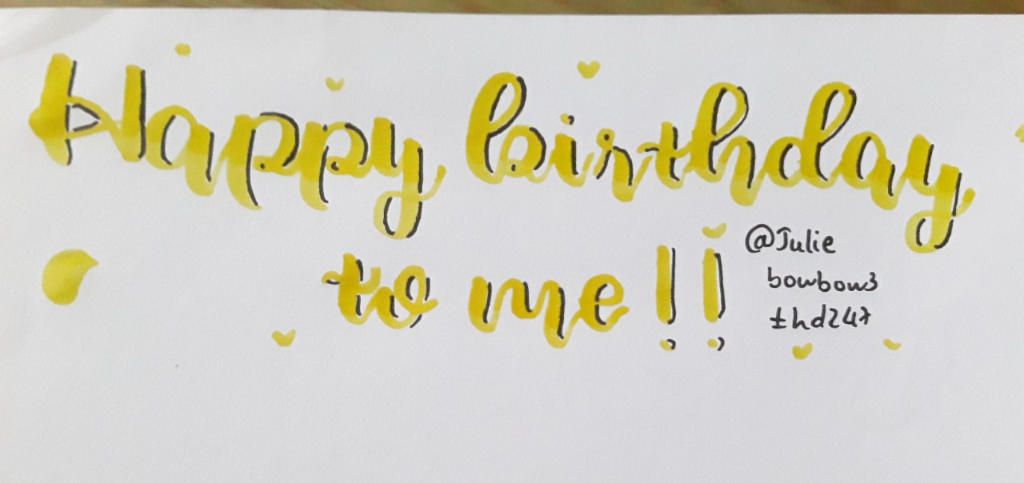 Happy birthday
to me !!
@Julie
bowbow3
thd247